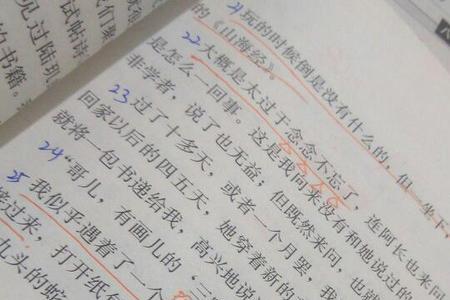 们聚
试帖诗
见过陆玑
的书籍。
21 玩的时候倒是没有什么的，但一坐下，
的《山海经》。
22 大概是太过于念念不忘了，连阿长也来问
是怎么一回事。这是我向来没有和她说过的
非学者，说了也无益；但既然来问，也就
23 过了十多天，或者一个月罢，我
回家以后的四五天，她穿着新的
就将一包书递给我，高兴地说
24 “哥儿，有画儿的‘三
25 我似乎遇着了一个
接过来，打开纸
九头的蛇